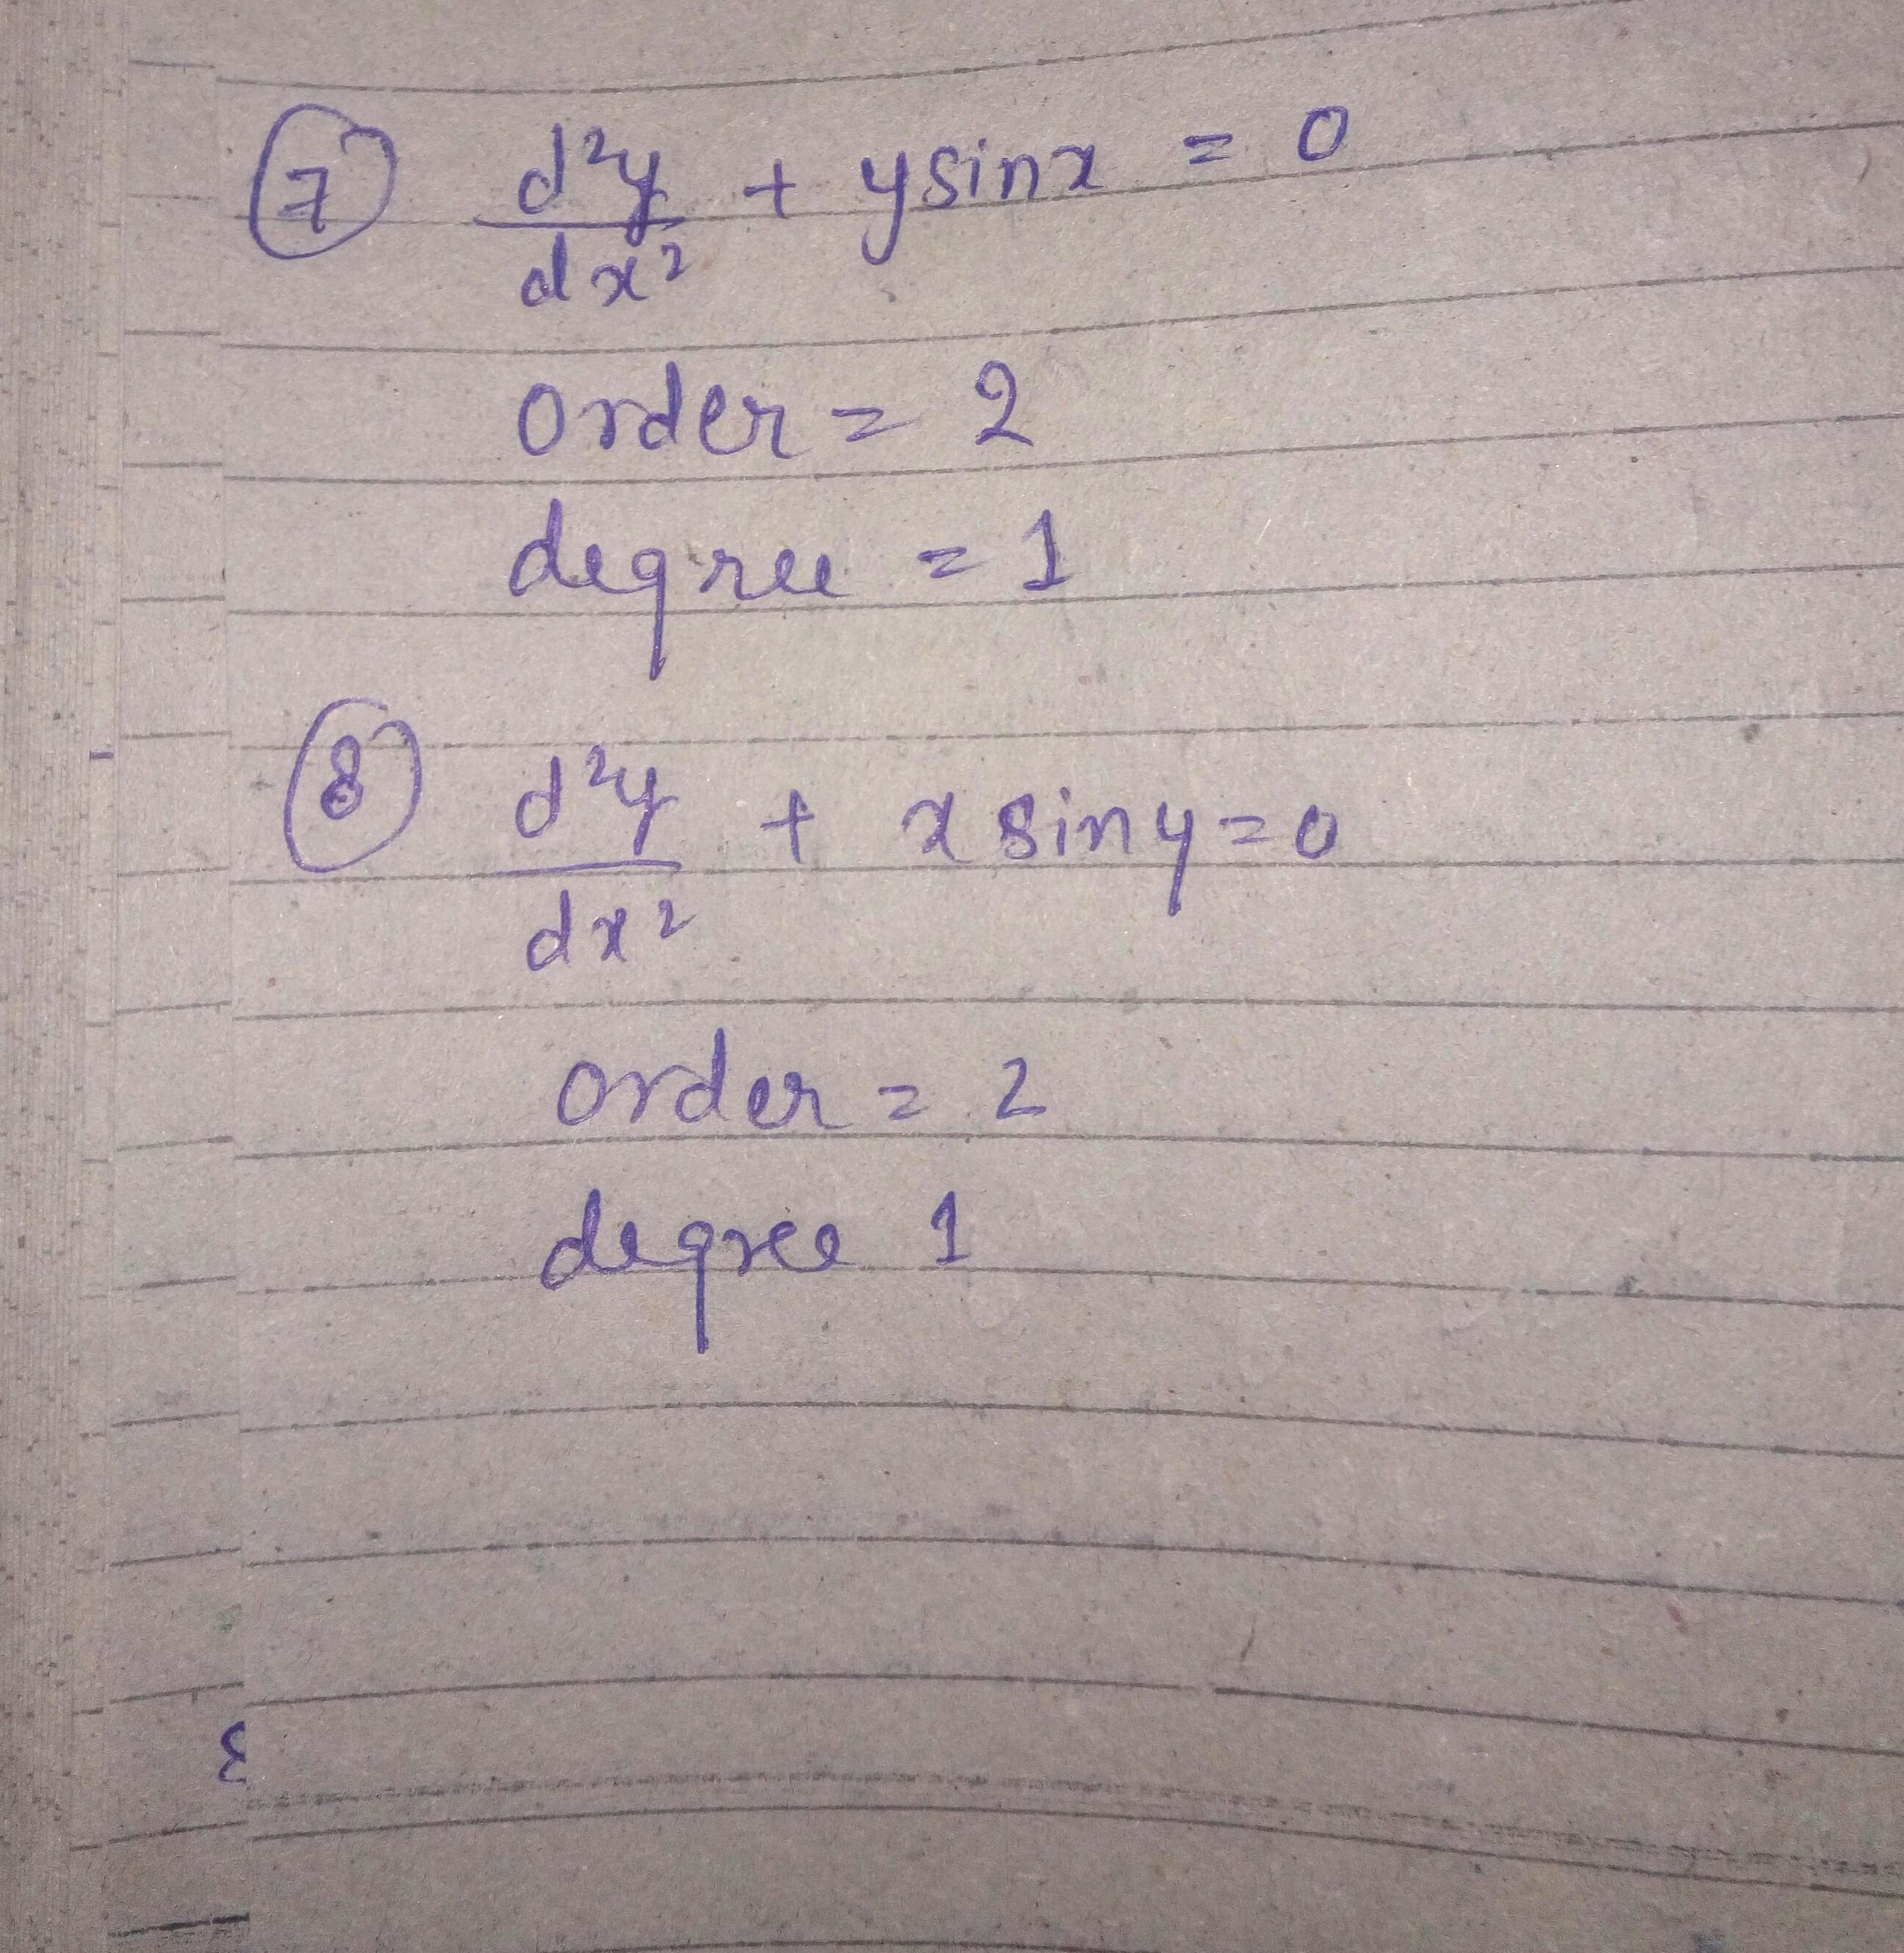 7 d²y/dx² + y sinx = 0
order = 2
degree = 1
8 d²y/dx² + x siny = 0
order = 2
degree 1